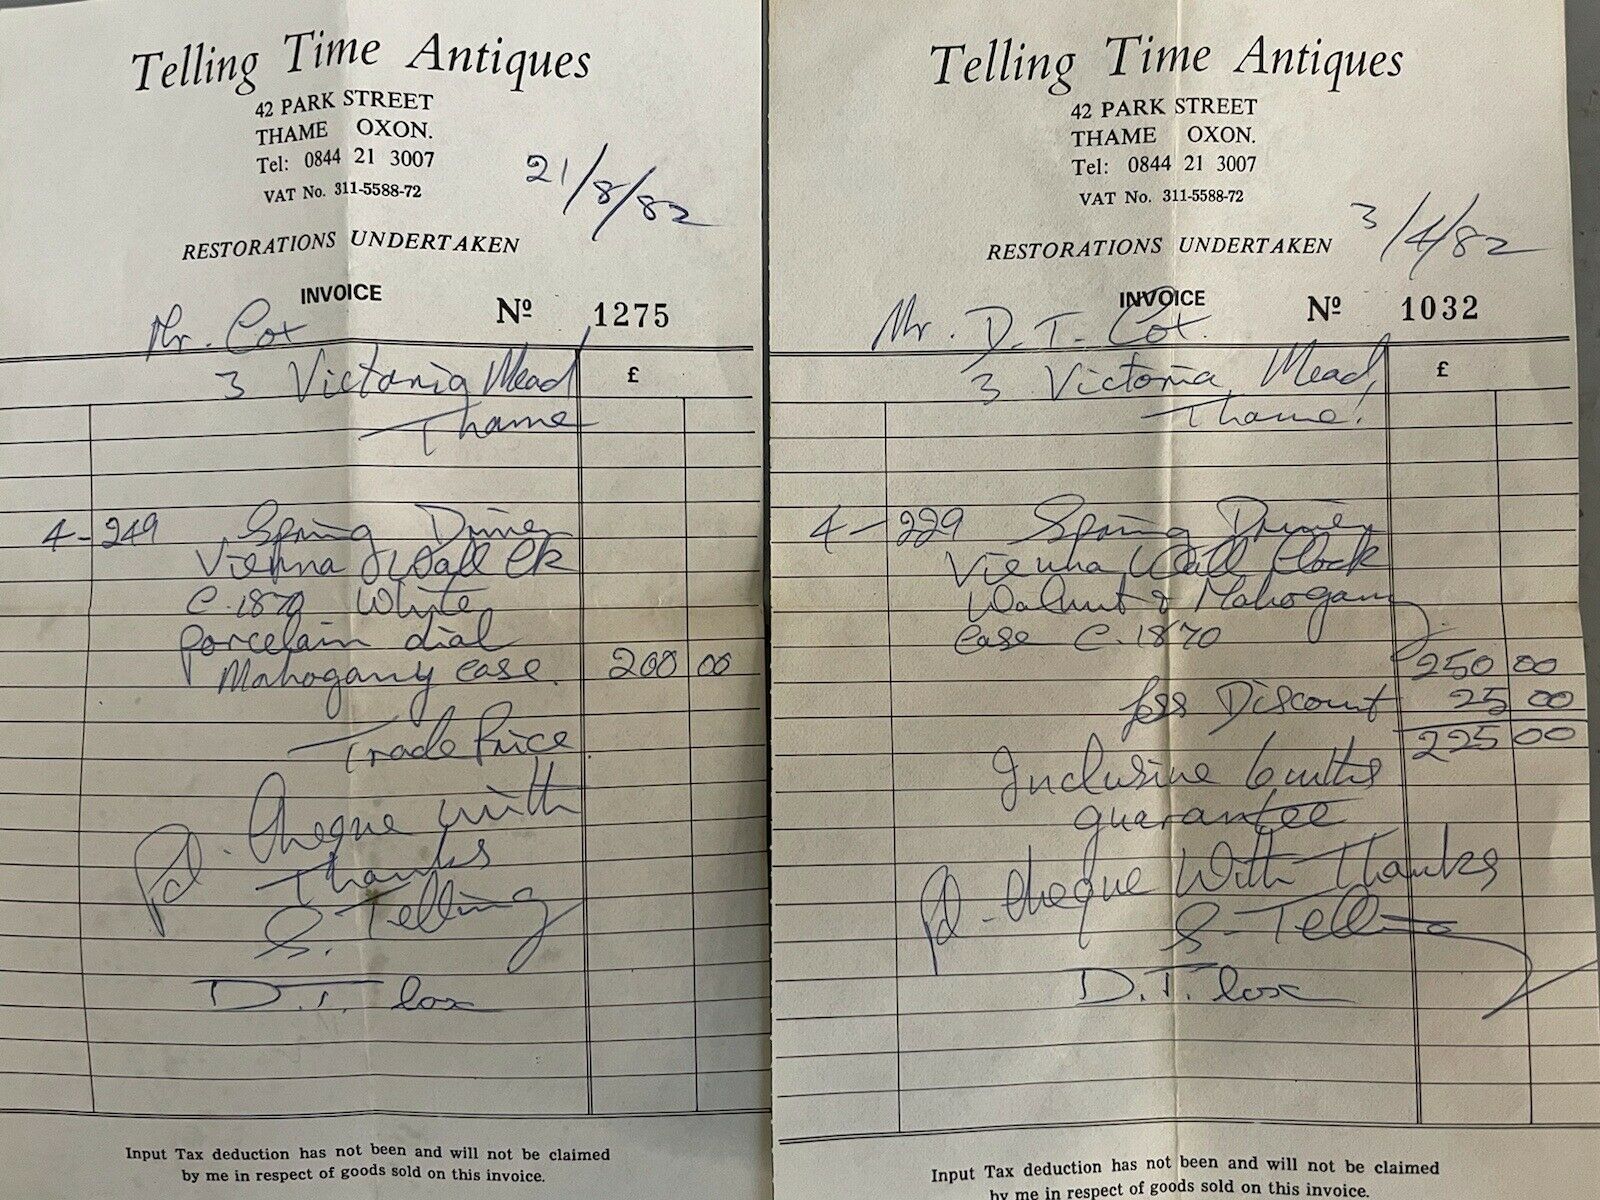 Telling Time Antiques
42 PARK STREET
THAME OXON.
Tel: 0844 21 3007
VAT No. 311-5588-72
21/8/82
RESTORATIONS UNDERTAKEN
INVOICE Nº 1275
Mr. Cox
3 Victoria Mead £
Thame
4-249 Spring Driven
Vienna Wall Clk
c.1870 White
porcelain dial
Mahogany case. 200 00
Trade Price
Pd. Cheque with
Thanks
S. Telling
D.T. Cox
Input Tax deduction has not been and will not be claimed
by me in respect of goods sold on this invoice.
Telling Time Antiques
42 PARK STREET
THAME OXON.
Tel: 0844 21 3007
VAT No. 311-5588-72
3/4/82
RESTORATIONS UNDERTAKEN
INVOICE Nº 1032
Mr. D.T. Cox.
3 Victoria Mead, £
Thame.
4-229 Spring Driven
Vienna Wall Clock
Walnut & Mahogany
case c.1870
250 00
less Discount 25 00
225 00
Inclusive 6 mths
guarantee
Pd. Cheque With Thanks
S. Telling
D.T. Cox
Input Tax deduction has not been and will not be claimed
by me in respect of goods sold on this invoice.